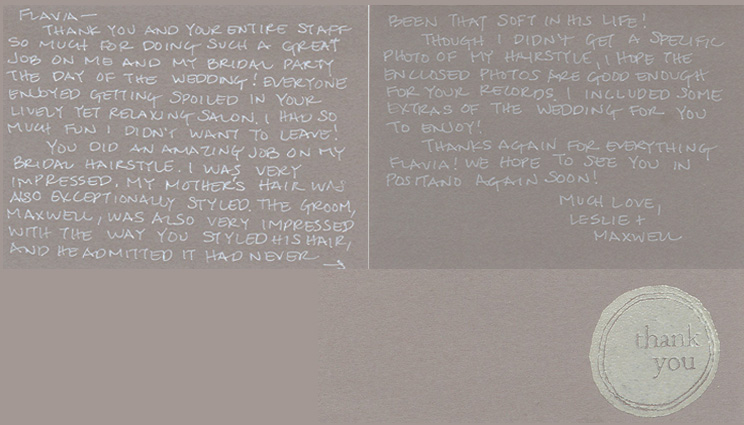 FLAVIA—
THANK YOU AND YOUR ENTIRE STAFF
SO MUCH FOR DOING SUCH A GREAT
JOB ON ME AND MY BRIDAL PARTY
THE DAY OF THE WEDDING! EVERYONE
ENJOYED GETTING SPOILED IN YOUR
LIVELY YET RELAXING SALON. I HAD SO
MUCH FUN I DIDN'T WANT TO LEAVE!
YOU DID AN AMAZING JOB ON MY
BRIDAL HAIRSTYLE. I WAS VERY
IMPRESSED. MY MOTHER'S HAIR WAS
ALSO EXCEPTIONALLY STYLED. THE GROOM,
MAXWELL, WAS ALSO VERY IMPRESSED
WITH THE WAY YOU STYLED HIS HAIR,
AND HE ADMITTED IT HAD NEVER →
BEEN THAT SOFT IN HIS LIFE!
THOUGH I DIDN'T GET A SPECIFIC
PHOTO OF MY HAIRSTYLE, I HOPE THE
ENCLOSED PHOTOS ARE GOOD ENOUGH
FOR YOUR RECORDS. I INCLUDED SOME
EXTRAS OF THE WEDDING FOR YOU
TO ENJOY!
THANKS AGAIN FOR EVERYTHING
FLAVIA! WE HOPE TO SEE YOU IN
POSITANO AGAIN SOON!
MUCH LOVE,
LESLIE +
MAXWELL
thank
you